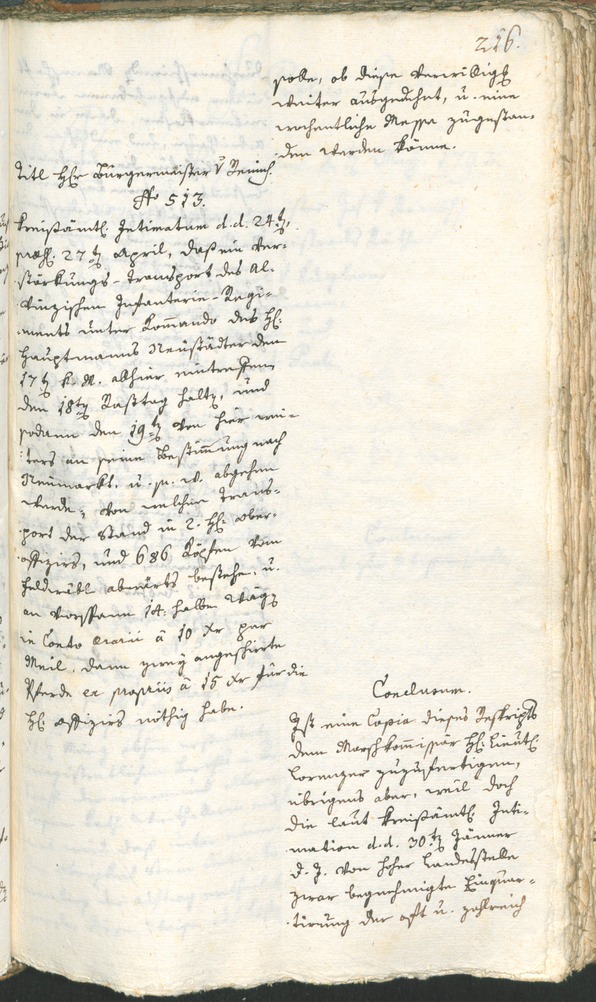 216.
solle, ob diese Verwilligg
weiter ausgedehnt, u. eine
wochentliche Messa zugestan-
den werden könne.
Titl Hr Bürgermeister v Reinisch
No 513.
Kreißämtl. Intimatum d. d. 24ten,
præs. 27ten April, daß ein Ver-
stärkungs-Transport des Al-
vinzischen Infanterie-Regi-
ments unter Kommando des H.
Hauptmanns Neustädter den
17ten k. M. allhier eintreffen,
den 18ten Rasttag halten, und
sodann den 19ten von hier wei-
ters an seine Bestimmung nach
Neumarkt u. s. w. abgehen
werde; von welchen Trans-
port der Stand in 2. H. Ober-
offiziers, und 686 Köpfen vom
Feldwäbl abwärts bestehe, u.
an Vorspann 14. halbe Wäg
in Conto Ærarii à 10 Xr per
Meil, dann zwey angeschirrte
Pferde ex propriis à 15 Xr für die
H. Offiziers nöthig habe.
Conclusum.
Ist eine Copia dieses Reskripts
dem Marschkommissär H. Lieut.
Lorenzer zuzufertigen,
übrigens aber, weil doch
die laut kreißämtl. Inti-
mation d. d. 30ten Jänner
d. J. von hoher Landesstelle
zwar begnehmigte Einquar-
tirung der oft u. zahlreich